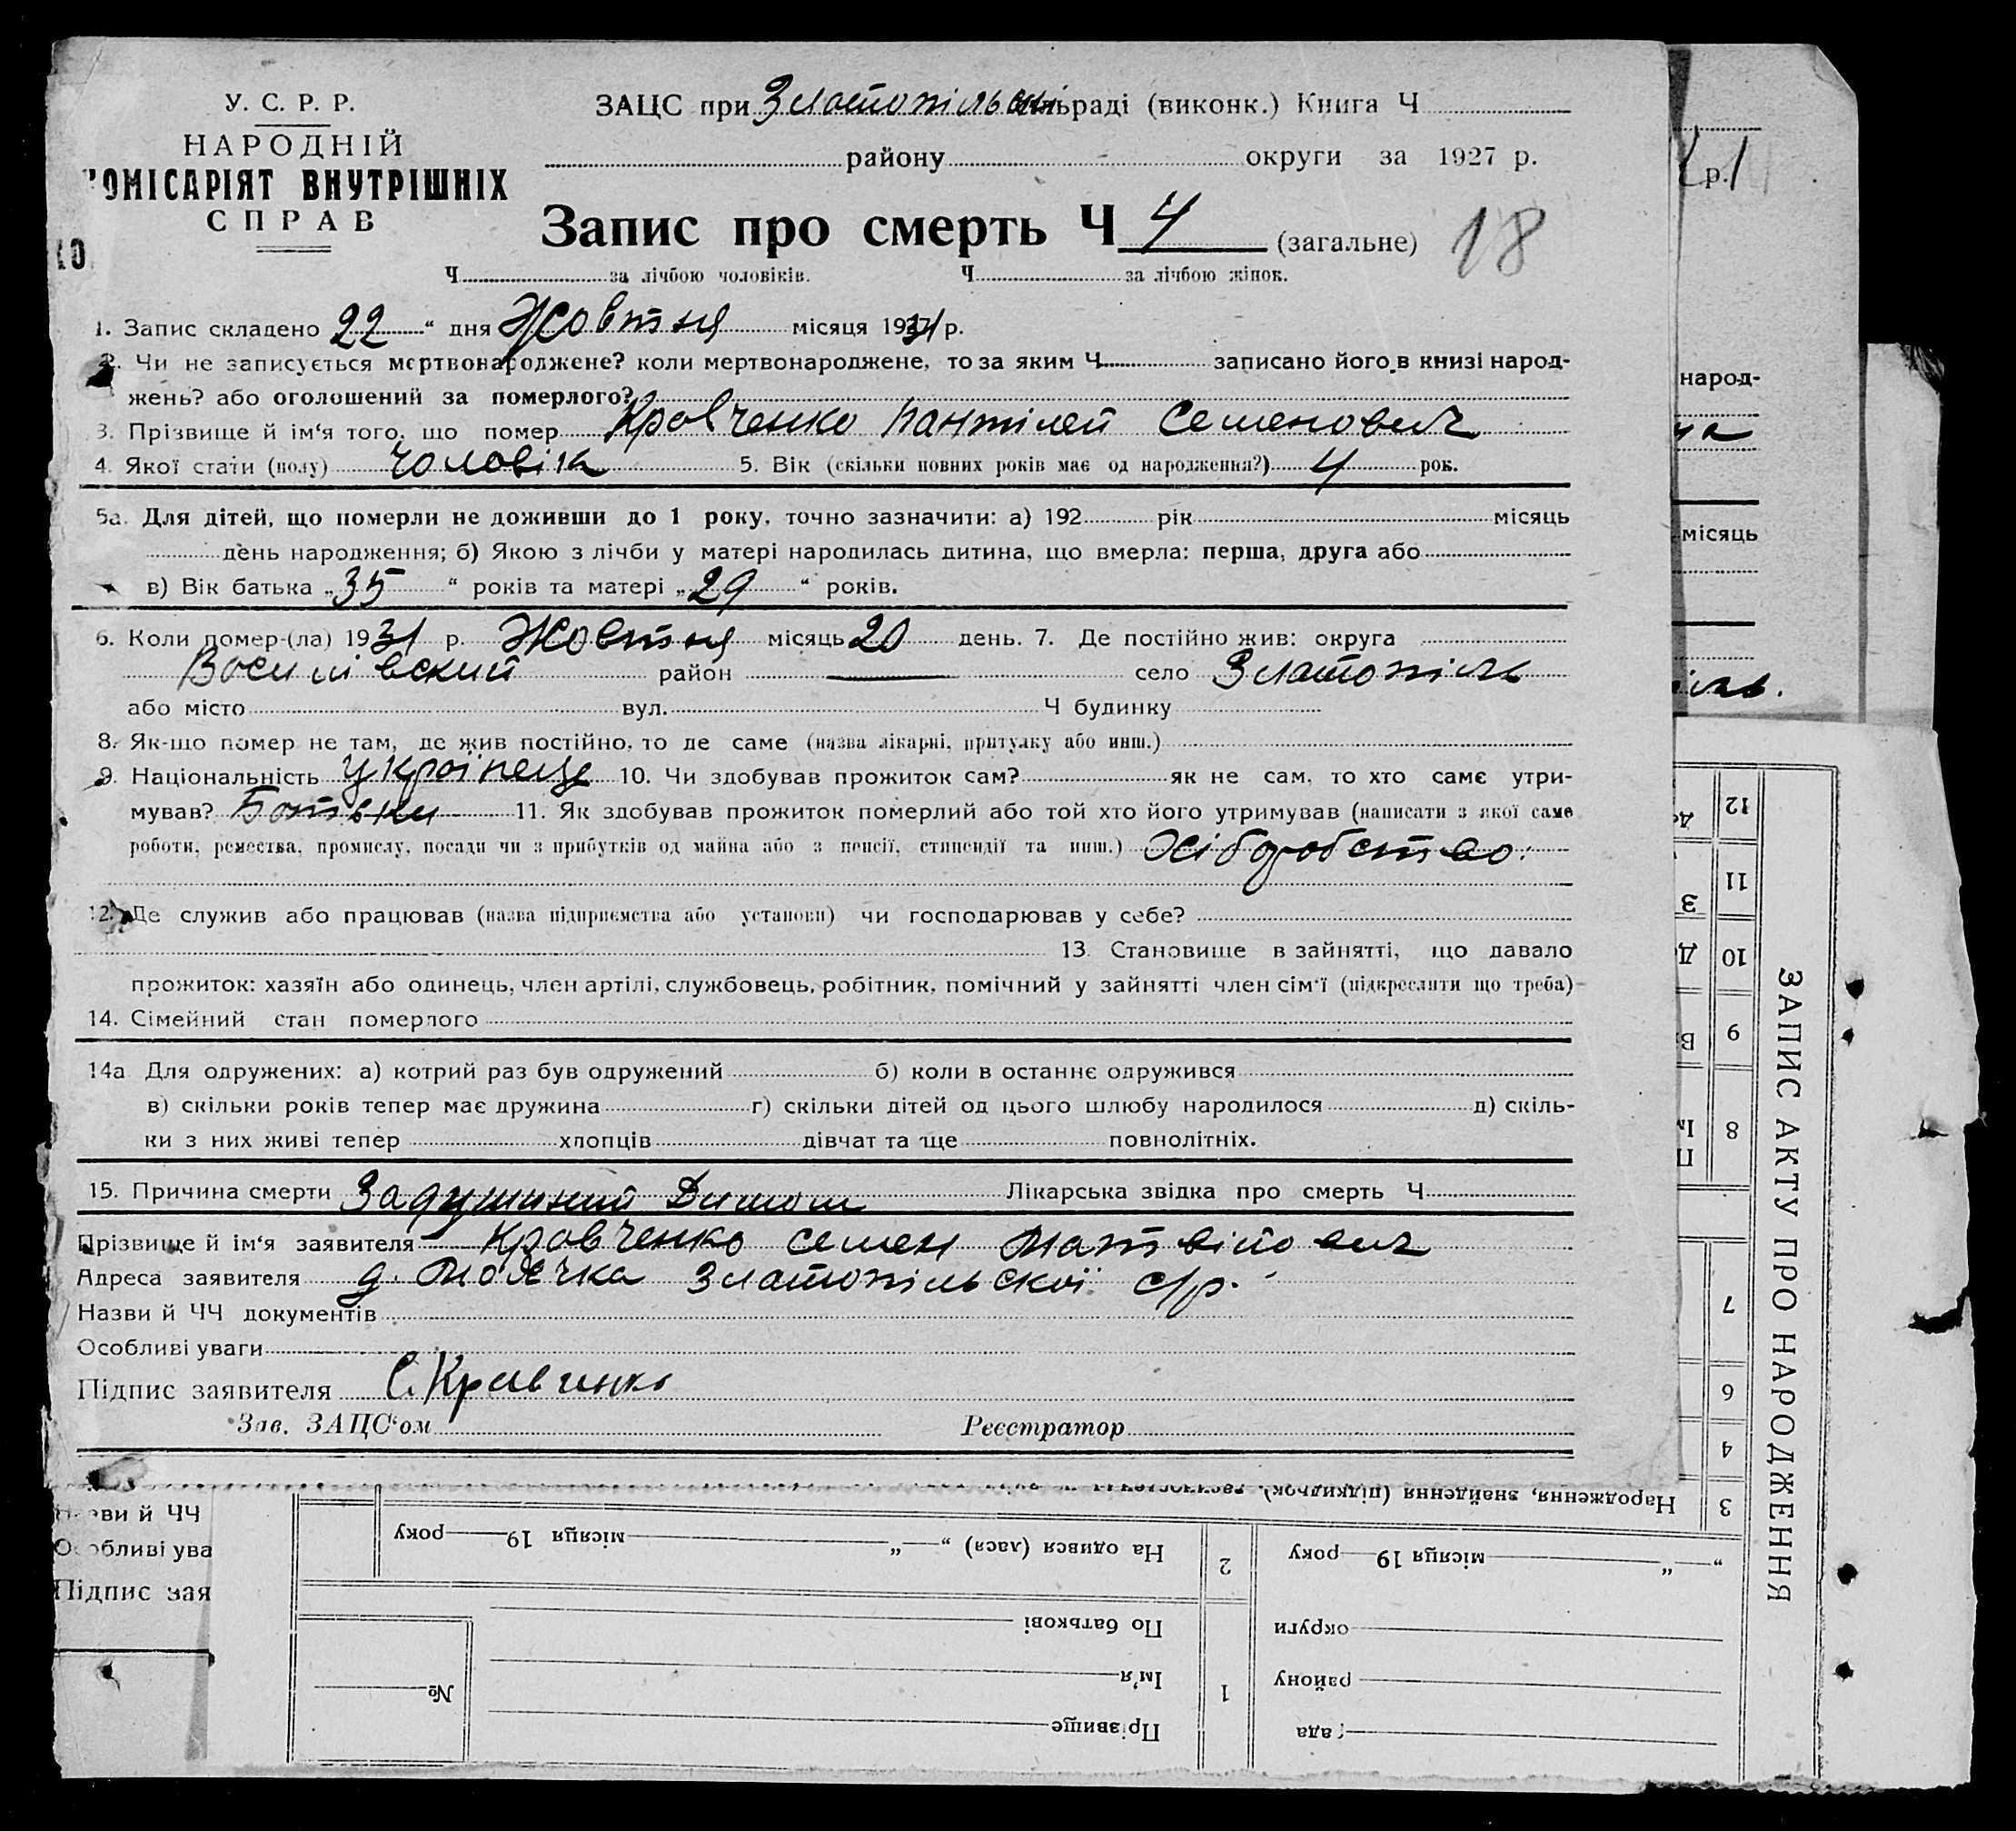 У. С. Р. Р.
НАРОДНІЙ
ОМІСАРІЯТ ВНУТРІШНІХ
СПРАВ
ЗАЦС при Златопільськ сільраді (виконк.) Книга Ч
району округи за 1927 р.
Запис про смерть Ч 4 (загальне) 18
Ч за лічбою чоловіків. Ч за лічбою жінок.
1. Запис складено 22 " дня Жовтня місяця 1931 р.
2. Чи не записується мертвонароджене? коли мертвонароджене, то за яким Ч записано його в книзі народ-
жень? або оголошений за померлого?
3. Прізвище й ім'я того, що помер Кравченко Пантілей Семенович
4. Якої стати (полу) чоловіка 5. Вік (скільки повних років має од народження?) 4 рок.
5а. Для дітей, що померли не доживши до 1 року, точно зазначити: а) 192 рік місяць
день народження; б) Якою з лічби у матері народилась дитина, що вмерла: перша, друга або
в) Вік батька „ 35 " років та матері „ 29 " років.
6. Коли помер-(ла) 1931 р. Жовтня місяць 20 день. 7. Де постійно жив: округа
Василівский район — село Златопіль
або місто вул. Ч будинку
8. Як-що помер не там, де жив постійно, то де саме (назва лікарні, притулку або инш.)
9. Національність Українець 10. Чи здобував прожиток сам? як не сам, то хто саме утри-
мував? Батьки 11. Як здобував прожиток померлий або той хто його утримував (написати з якої саме
роботи, ремества, промислу, посади чи з прибутків од майна або з пенсії, стипендії та инш.) Хліборобство.
12. Де служив або працював (назва підприємства або установи) чи господарював у себе?
13. Становище в зайнятті, що давало
прожиток: хазяїн або одинець, член артілі, службовець, робітник, помічний у зайнятті член сім'ї (підкреслити що треба)
14. Сімейний стан померлого
14а Для одружених: а) котрий раз був одружений б) коли в останнє одружився
в) скільки років тепер має дружина г) скільки дітей од цього шлюбу народилося д) скіль-
ки з них живі тепер хлопців дівчат та ще повнолітніх.
15. Причина смерти Задушиний Димом Лікарська звідка про смерть Ч
Прізвище й ім'я заявителя Кравченко Семен Матвійович
Адреса заявителя Златопільскої с/р.
Назви й ЧЧ документів
Особливі уваги
Підпис заявителя С. Кравченко
Зав. ЗАЦС'ом Реєстратор
р.
народ-
місяць
іль.
ви й ЧЧ
обливі ува
Підпис зая
ЗАПИС АКТУ ПРО НАРОДЖЕННЯ
12
11
10
9
8
7
6
4
3 Народження, знайдення (підкидьок)
„ " місяця 19 року 2 На одився (лася) „ " місяця 19 року
округи По батькові
району 1 Ім'я №
ада Прізвище